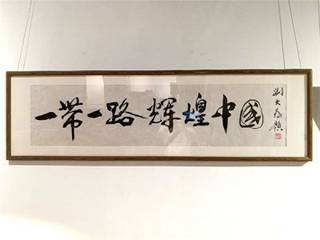 一带一路辉煌中國
刘大为题